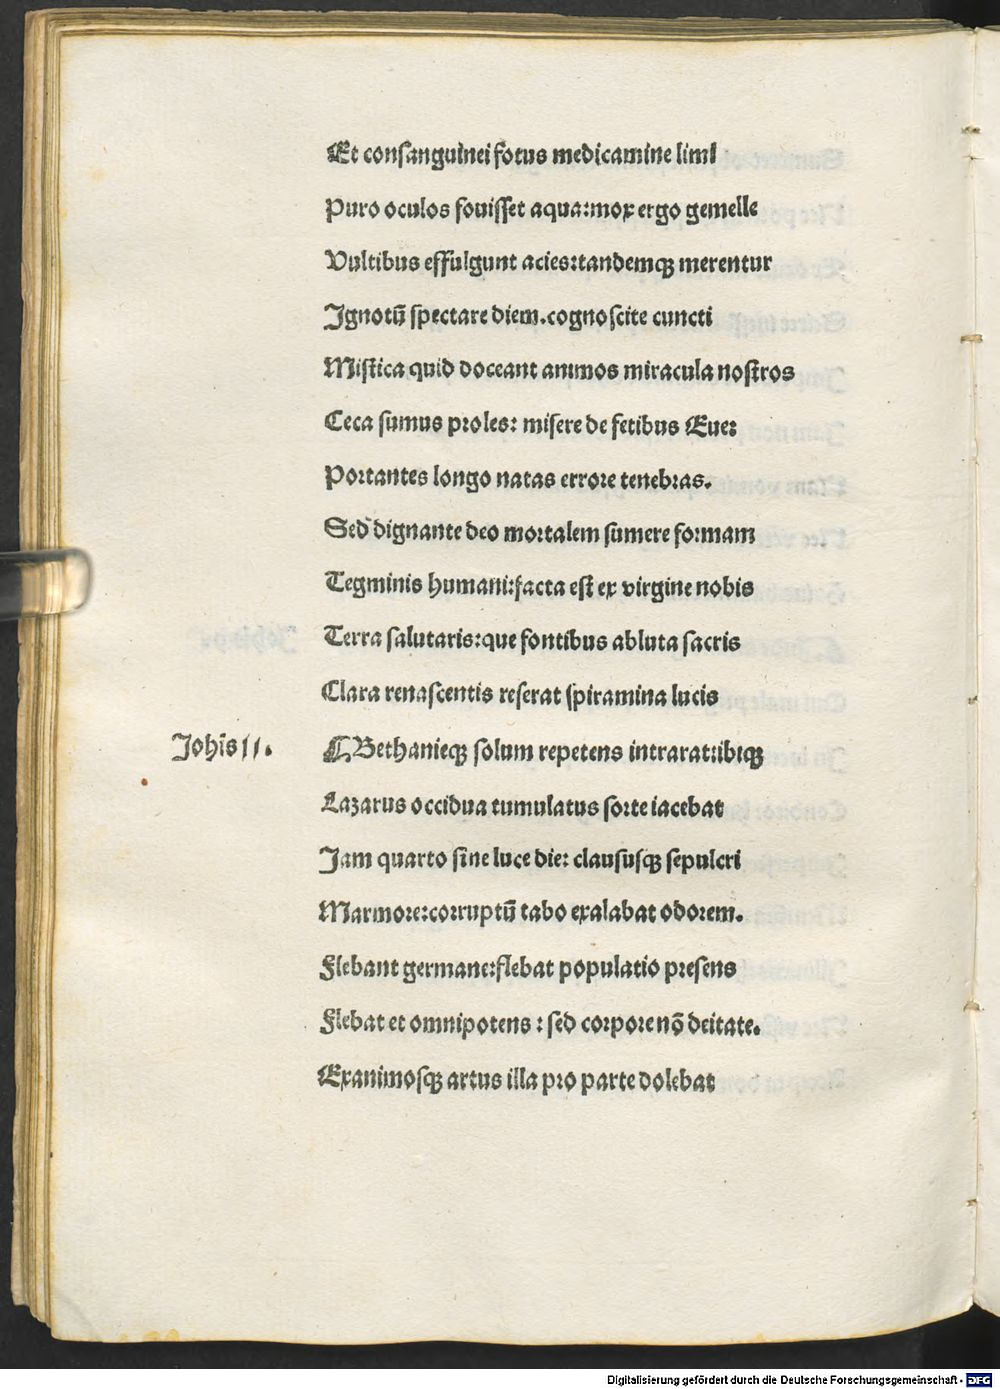 Et consanguinei fotus medicamine limi
Puro oculos fouisset aqua: mox ergo gemelle
Vultibus effulgunt acies: tandemqꝫ merentur
Ignotū spectare diem. cognoscite cuncti
Mistica quid doceant animos miracula nostros
Ceca sumus proles: misere de fetibus Eue:
Portantes longo natas errore tenebras.
Sed dignante deo mortalem sumere formam
Tegminis humani: facta est ex virgine nobis
Terra salutaris: que fontibus abluta sacris
Clara renascentis reserat spiramina lucis
Johis 11. ¶ Bethanieqꝫ solum repetens intrarat: ibiqꝫ
Lazarus occidua tumulatus sorte iacebat
Jam quarto sine luce die: clausuſqꝫ sepulcri
Marmore: corruptū tabo exalabat odorem.
Flebant germane: flebat populatio presens
Flebat et omnipotens: sed corpore nō deitate.
Exanimosqꝫ artus illa pro parte dolebat
Digitalisierung gefördert durch die Deutsche Forschungsgemeinschaft - DFG